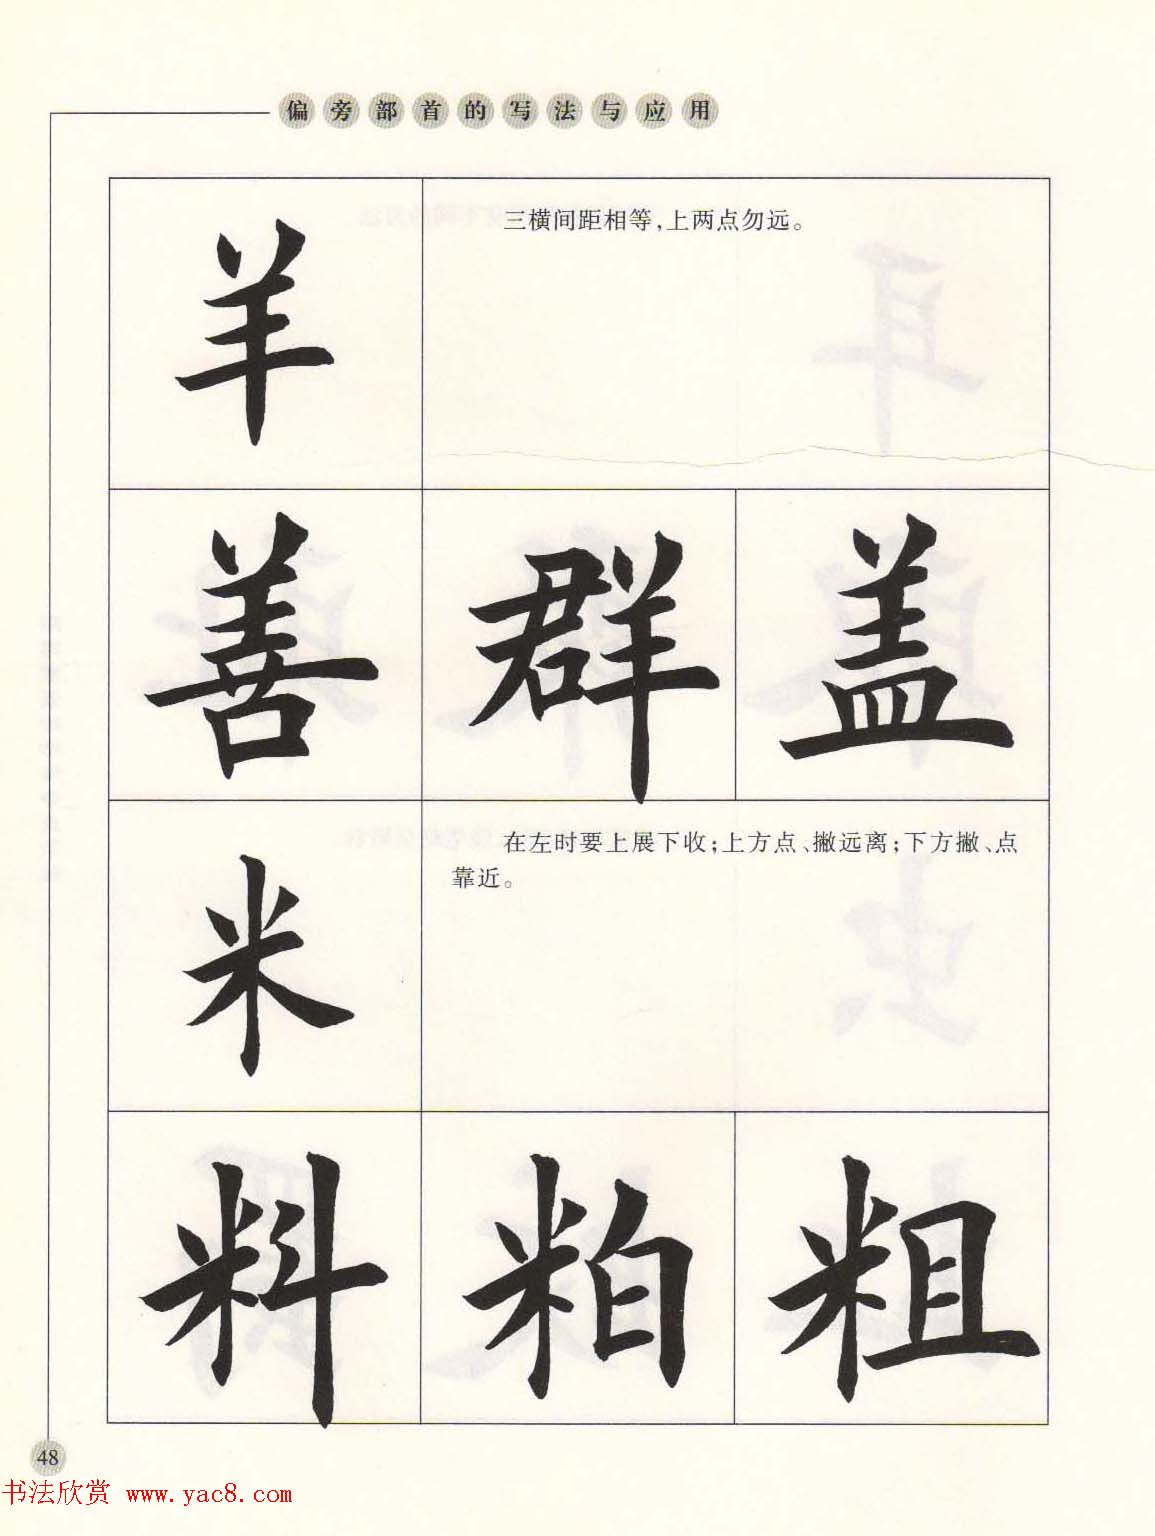 偏旁部首的写法与应用
羊
三横间距相等,上两点勿远。
善 群 盖
米
在左时要上展下收;上方点、撇远离;下方撇、点
靠近。
料 粕 粗
48
书法欣赏 www.yac8.com